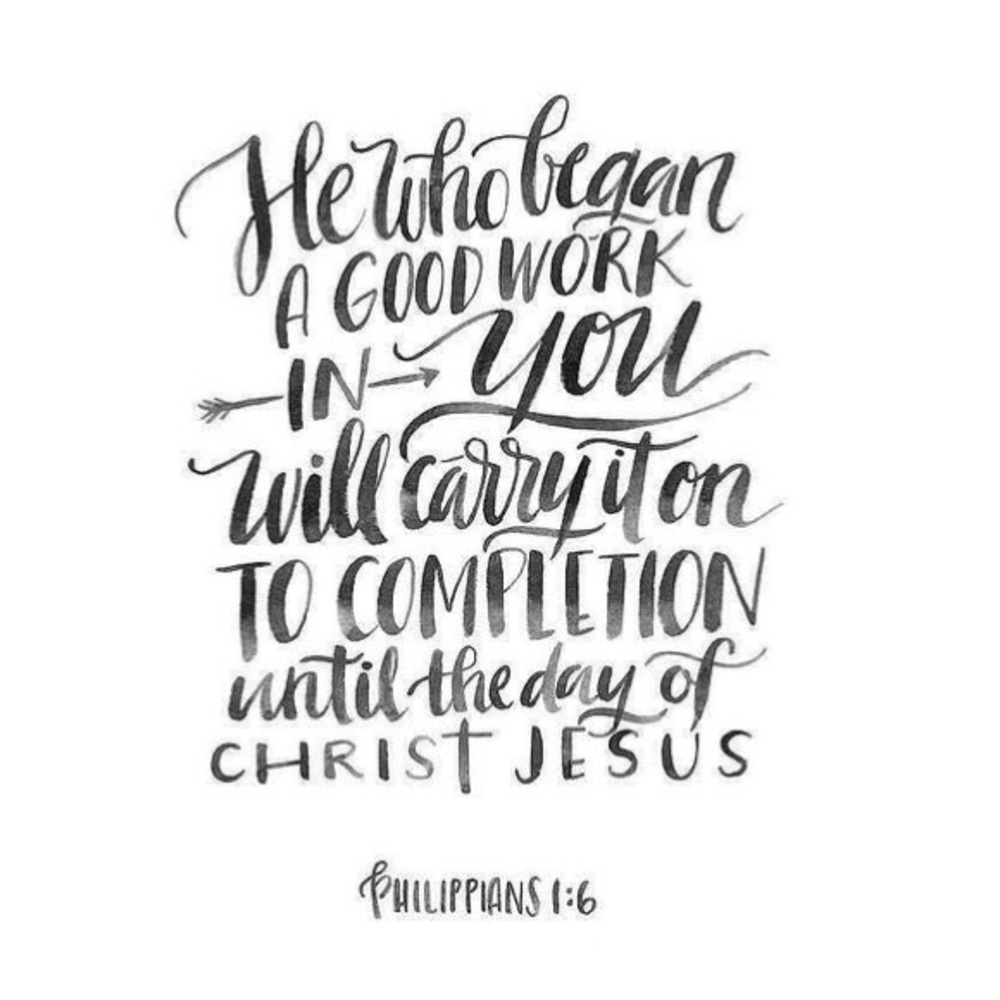 He who began
A GOOD WORK
IN YOU
will carry it on
TO COMPLETION
until the day of
CHRIST JESUS
PHILIPPIANS 1:6